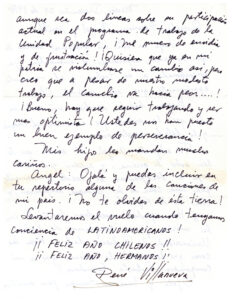 aunque sea dos líneas sobre su participación
actual en el programa de trabajo de la
Unidad Popular, ¡me muero de envidia
y de frustración! ¡Quisiera que ya en mi
patria se vislumbrase un cambio así, pero
creo que a pesar de nuestro modesto
trabajo, el cambio va hacia peor....!
¡Bueno, hay que seguir trabajando y ser
más optimista! ¡Ustedes nos han puesto
un buen ejemplo de perseverancia!
Mis hijos les mandan muchos
cariños.
Angel: Ojalá y puedas incluir en
tu repertorio alguna de las canciones de
mi país. ¡No te olvides de esta tierra!
¡Levantaremos el vuelo cuando tengamos
conciencia de LATINOAMERICANOS!
¡¡ FELIZ AÑO CHILENOS !!
¡¡ FELIZ AÑO, HERMANOS !!
René Villanueva